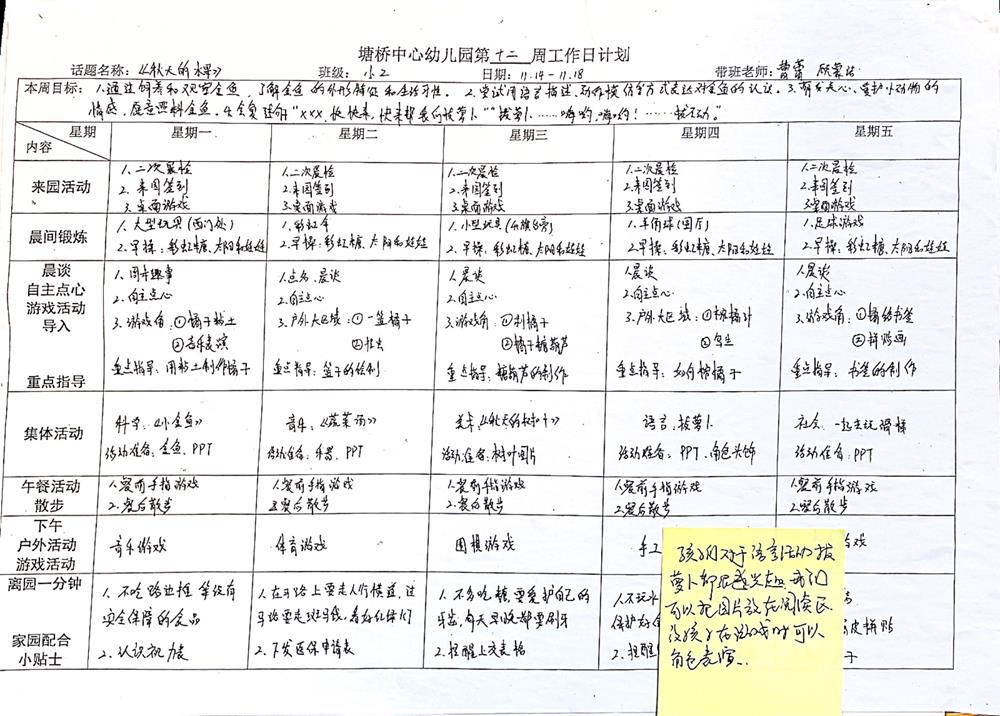 塘桥中心幼儿园第 十二 周工作日计划
话题名称：《秋天的水果》 班级：小2 日期：11.14－11.18 带班老师：曹蕾
本周目标：1.通过饲养和观察金鱼，了解金鱼的外形特征和生活习性。2.尝试用语言描述、动作模仿等方式表达对金鱼的认识。3.萌发关心、爱护小动物的
情感，愿意照料金鱼。4.会复述句"xxx，快快来，快来帮我们拔萝卜""拔萝卜……嗨哟，嗨哟！……拔不动。"
星期 内容 星期一 星期二 星期三 星期四 星期五
来园活动 1.二次晨检 1.二次晨检 1.二次晨检 1.二次晨检 1.二次晨检
2.来园签到 2.来园签到 2.来园签到 2.来园签到 2.来园签到
3.桌面游戏 3.桌面游戏 3.桌面游戏 3.桌面游戏 3.桌面游戏
晨间锻炼 1.大型玩具（西门处） 1.彩虹伞 1.小型玩具 1.羊角球（园厅） 1.足球游戏
2.早操：彩虹糖、太阳和娃娃 2.早操：彩虹糖、太阳和娃娃 2.早操：彩虹糖、太阳和娃娃 2.早操：彩虹糖、太阳和娃娃 2.早操：彩虹糖、太阳和娃娃
晨谈 1.周末趣事 1.点名、晨谈 1.晨谈 1.晨谈 1.晨谈
自主点心 2.自主点心 2.自主点心 2.自主点心 2.自主点心 2.自主点心
游戏活动
导入 3.游戏角：①橘子粘土 3.户外大区域：①一篮橘子 3.游戏角：①剥橘子 3.户外大区域：①榨橘汁 3.游戏角：①橘络书签
②音乐表演 ②拉虫 ②橘子糖葫芦 ②写生 ②拼贴画
重点指导 重点指导：用粘土制作橘子 重点指导：篮子的绘制 重点指导：糖葫芦的制作 重点指导：如何榨橘子 重点指导：书签的制作
集体活动 科学：《小金鱼》 音乐：《蔬菜汤》 美术：《秋天的树叶》 语言：拔萝卜 社会：一起去玩滑梯
活动准备：金鱼、PPT 活动准备：手偶、PPT 活动准备：树叶图片 活动准备：PPT、角色头饰 活动准备：PPT
午餐活动 1.餐前手指游戏 1.餐前手指游戏 1.餐前手指游戏 1.餐前手指游戏 1.餐前手指游戏
散步 2.餐后散步 2.餐后散步 2.餐后散步 2.餐后散步 2.餐后散步
下午
户外活动 音乐游戏 体育游戏 围棋游戏 手工 游戏
游戏活动
离园一分钟 1.不吃路边摊等没有 1.在马路上要走人行横道，过 1.不多吃糖，要爱护自己的 1.不玩水
安全保障的食品 马路要走斑马线，看好红绿灯 牙齿，每天早晚都要刷牙 保护好 皮拼贴
家园配合
小贴士 2.认识视力表 2.下发医保申请表 2.提醒上交表格 2.提醒 子
孩子们对于语言活动拔
萝卜都很感兴趣，我们
可以把图片放在阅读区
让孩子在游戏时可以
角色表演..